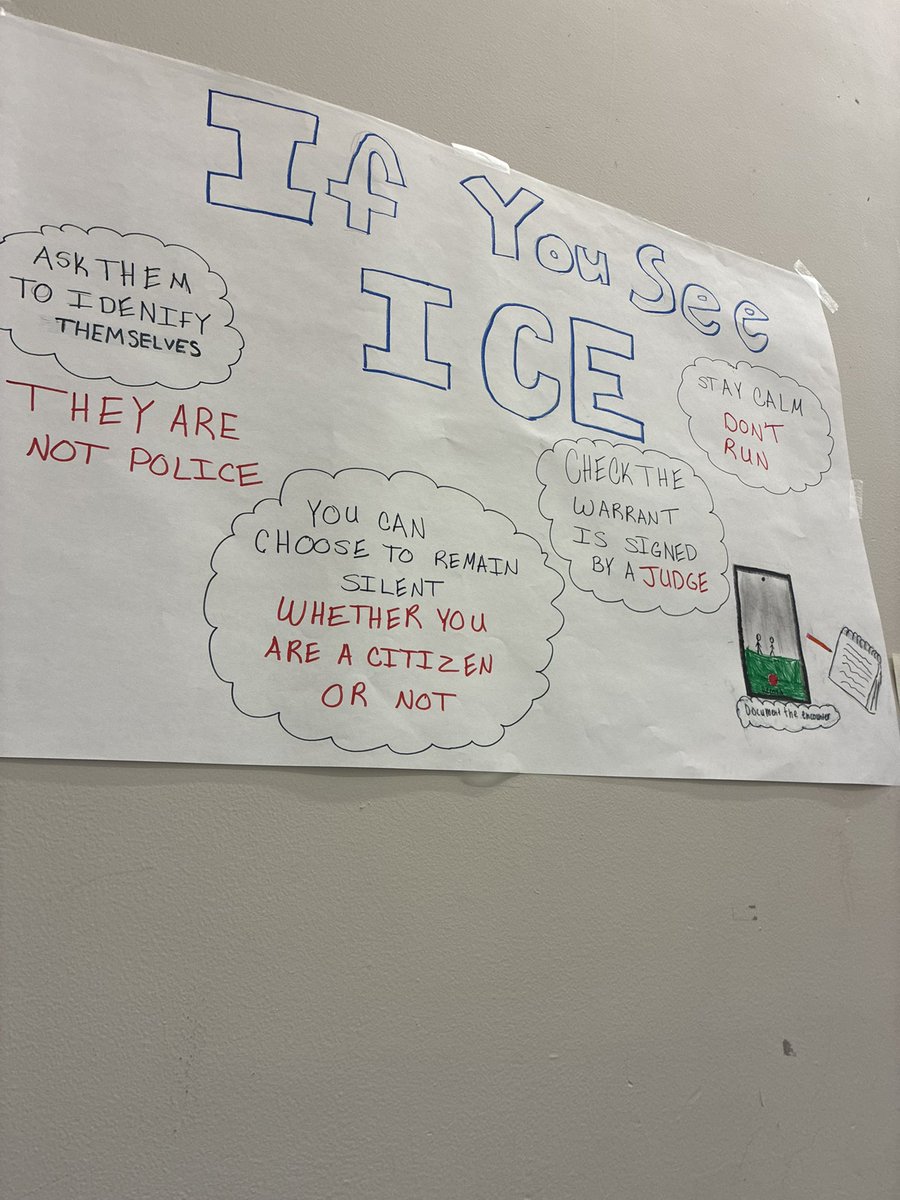 If You See
ICE
ASK THEM
TO IDENIFY
THEMSELVES
THEY ARE
NOT POLICE
YOU CAN
CHOOSE TO REMAIN
SILENT
WHETHER YOU
ARE A CITIZEN
OR NOT
CHECK THE
WARRANT
IS SIGNED
BY A JUDGE
STAY CALM
DON'T
RUN
Document the encounter